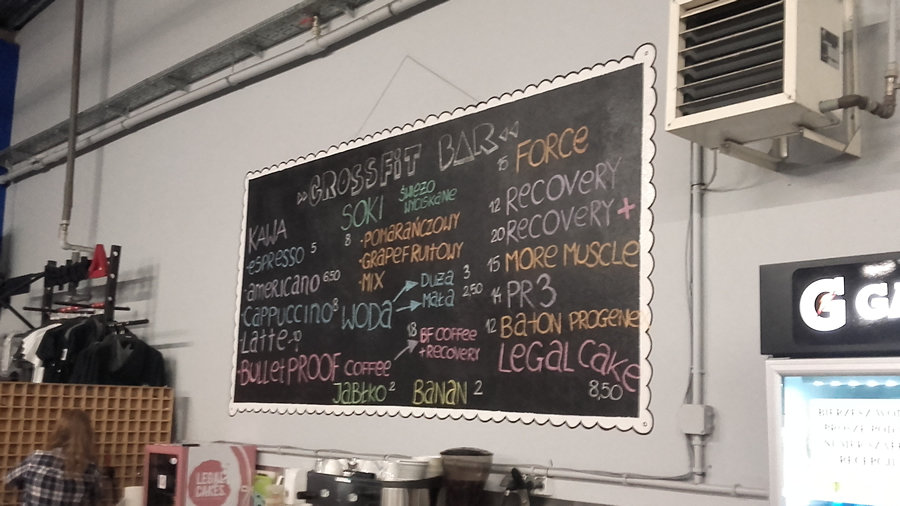 »CROSSFIT BAR«
KAWA
•ESPRESSO 5
americano 6,50
•Cappuccino 8
•Latte 10
•BulletPROOF COFFEE
SOKI ŚWIEŻO WYCISKANE
8 •POMARAŃCZOWY
•GRAPEFRUITOWY
•MIX
WODA
DUŻA 3
MAŁA 2,50
18 BF COFFEE
+RECOVERY
JABŁKO 2 BANAN 2
15 FORCE
12 RECOVERY
20 RECOVERY +
15 MORE MUSCLE
14 PR3
12 BATON PROGENE
LEGAL CAKE
8,50
LEGAL CAKES
G GA